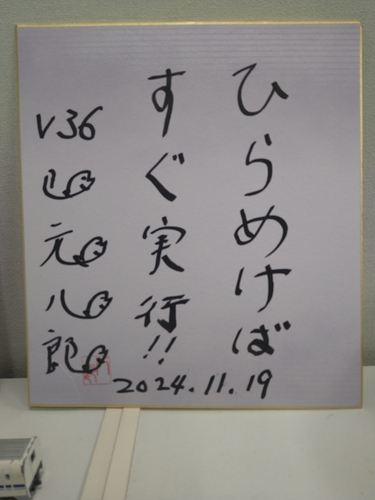 ひらめけば
すぐ実行!!
V36
山元八郎
2024.11.19